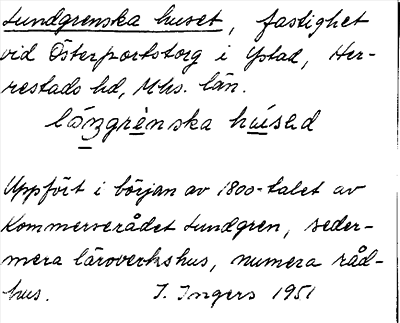 Lundgrenska huset, fastighet
vid Österportstorg i Ystad, Her-
restads hd, Mhs. län.
Uppfört i början av 1800-talet av
Kommerserådet Lundgren, seder-
mera läroverkshus, numera råd-
hus. I. Ingers 1951